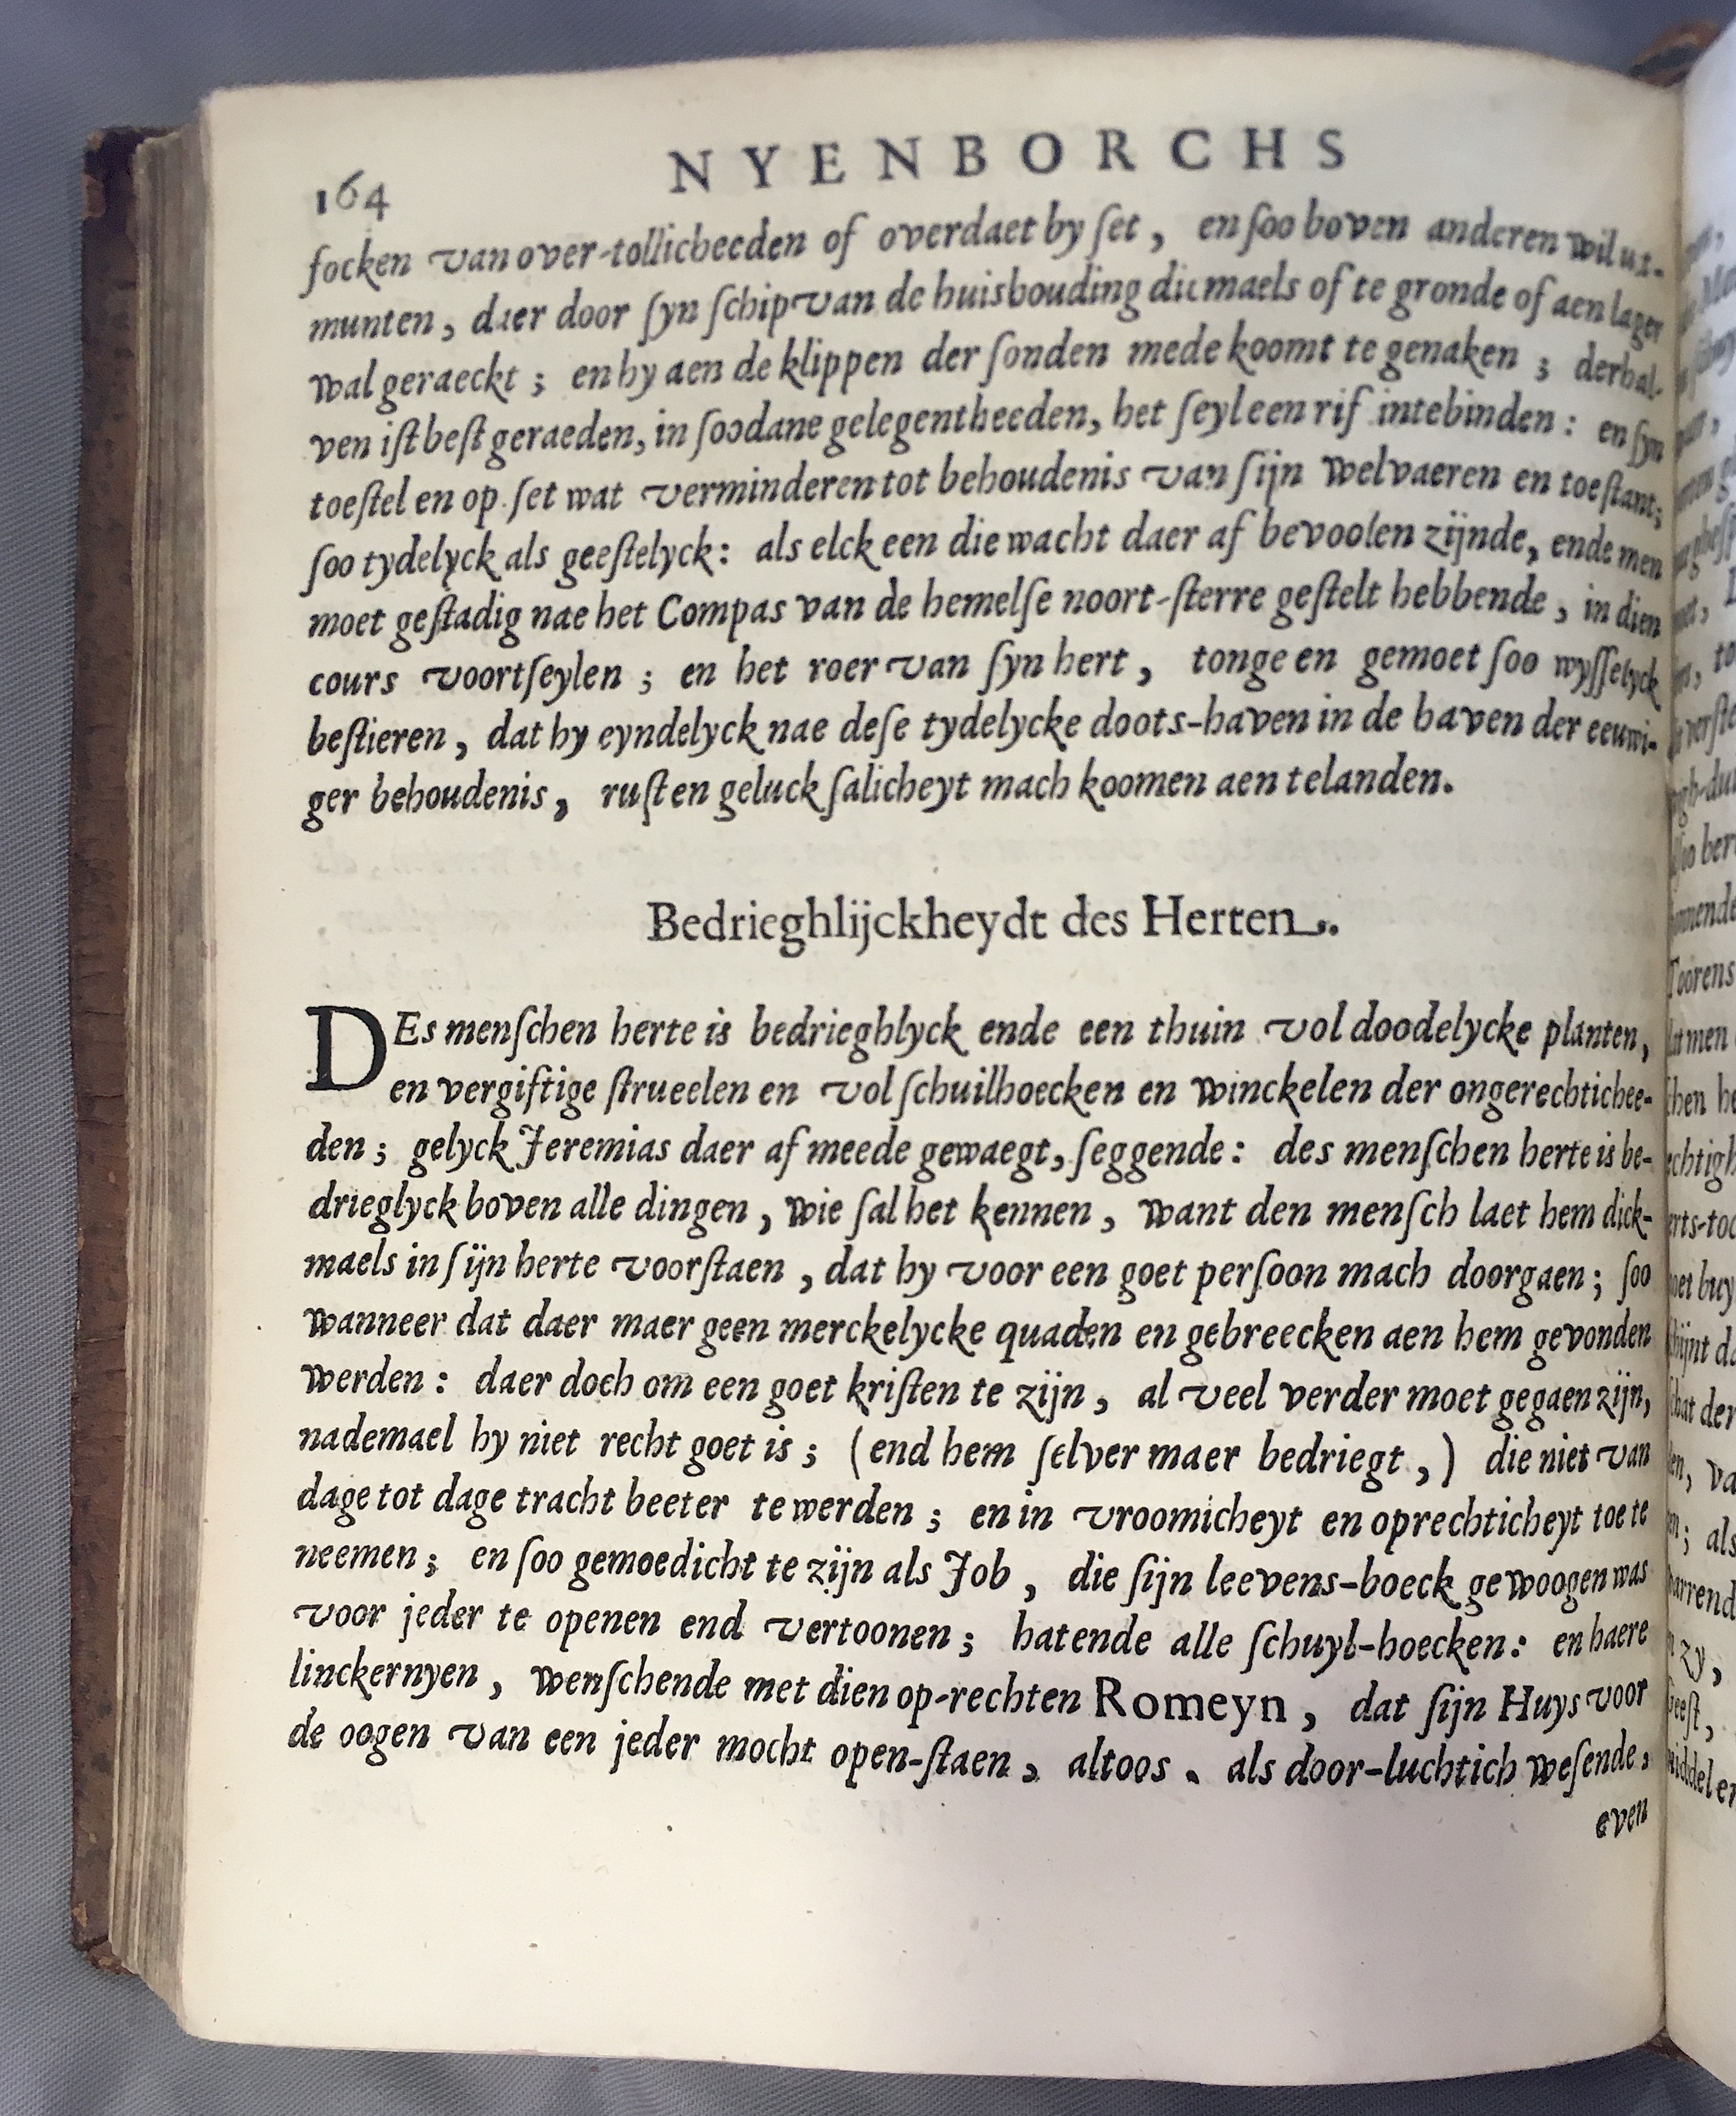 164 NYENBORCHS
focken van over-tollicheeden of overdaet by ſet, en ſoo boven anderen wil ut-
munten, daer door ſyn ſchip van de huishouding dicmaels of te gronde of aen lager
wal geraeckt; en hy aen de klippen der ſonden mede koomt te genaken; derhal-
ven iſt beſt geraeden, in ſoodane gelegentheeden, het ſeyl een rif intebinden: en ſyn
toeſtel en op ſet wat verminderen tot behoudenis van ſijn welvaeren en toeſtant;
ſoo tydelyck als geeſtelyck: als elck een die wacht daer af bevoolen zijnde, ende men
moet geſtadig nae het Compas van de hemelſe noort-ſterre geſtelt hebbende, in dien
cours voortſeylen; en het roer van ſyn hert, tonge en gemoet ſoo wyſſelyck
beſtieren, dat hy eyndelyck nae deſe tydelycke doots-haven in de haven der eeuwi-
ger behoudenis, ruſt en geluck ſalicheyt mach koomen aen telanden.
Bedrieghlijckheydt des Herten.
DEs menſchen herte is bedrieghlyck ende een thuin vol doodelycke planten,
en vergiftige ſtrueelen en vol ſchuilhoecken en winckelen der ongerechtichee-
den; gelyck Jeremias daer af meede gewaegt, ſeggende: des menſchen herte is be-
drieglyck boven alle dingen, wie ſal het kennen, want den menſch laet hem dick-
maels in ſijn herte voorſtaen, dat hy voor een goet perſoon mach doorgaen; ſoo
wanneer dat daer maer geen merckelycke quaden en gebreecken aen hem gevonden
werden: daer doch om een goet kriſten te zijn, al veel verder moet gegaen zijn,
nademael hy niet recht goet is; (end hem ſelver maer bedriegt,) die niet van
dage tot dage tracht beeter te werden; en in vroomicheyt en oprechticheyt toe te
neemen; en ſoo gemoedicht te zijn als Job, die ſijn leevens-boeck gewoogen was
voor jeder te openen end vertoonen; hatende alle ſchuyl-hoecken: en haere
linckernyen, wenſchende met dien op-rechten Romeyn, dat ſijn Huys voor
de oogen van een jeder mocht open-ſtaen, altoos. als door-luchtich weſende,
even